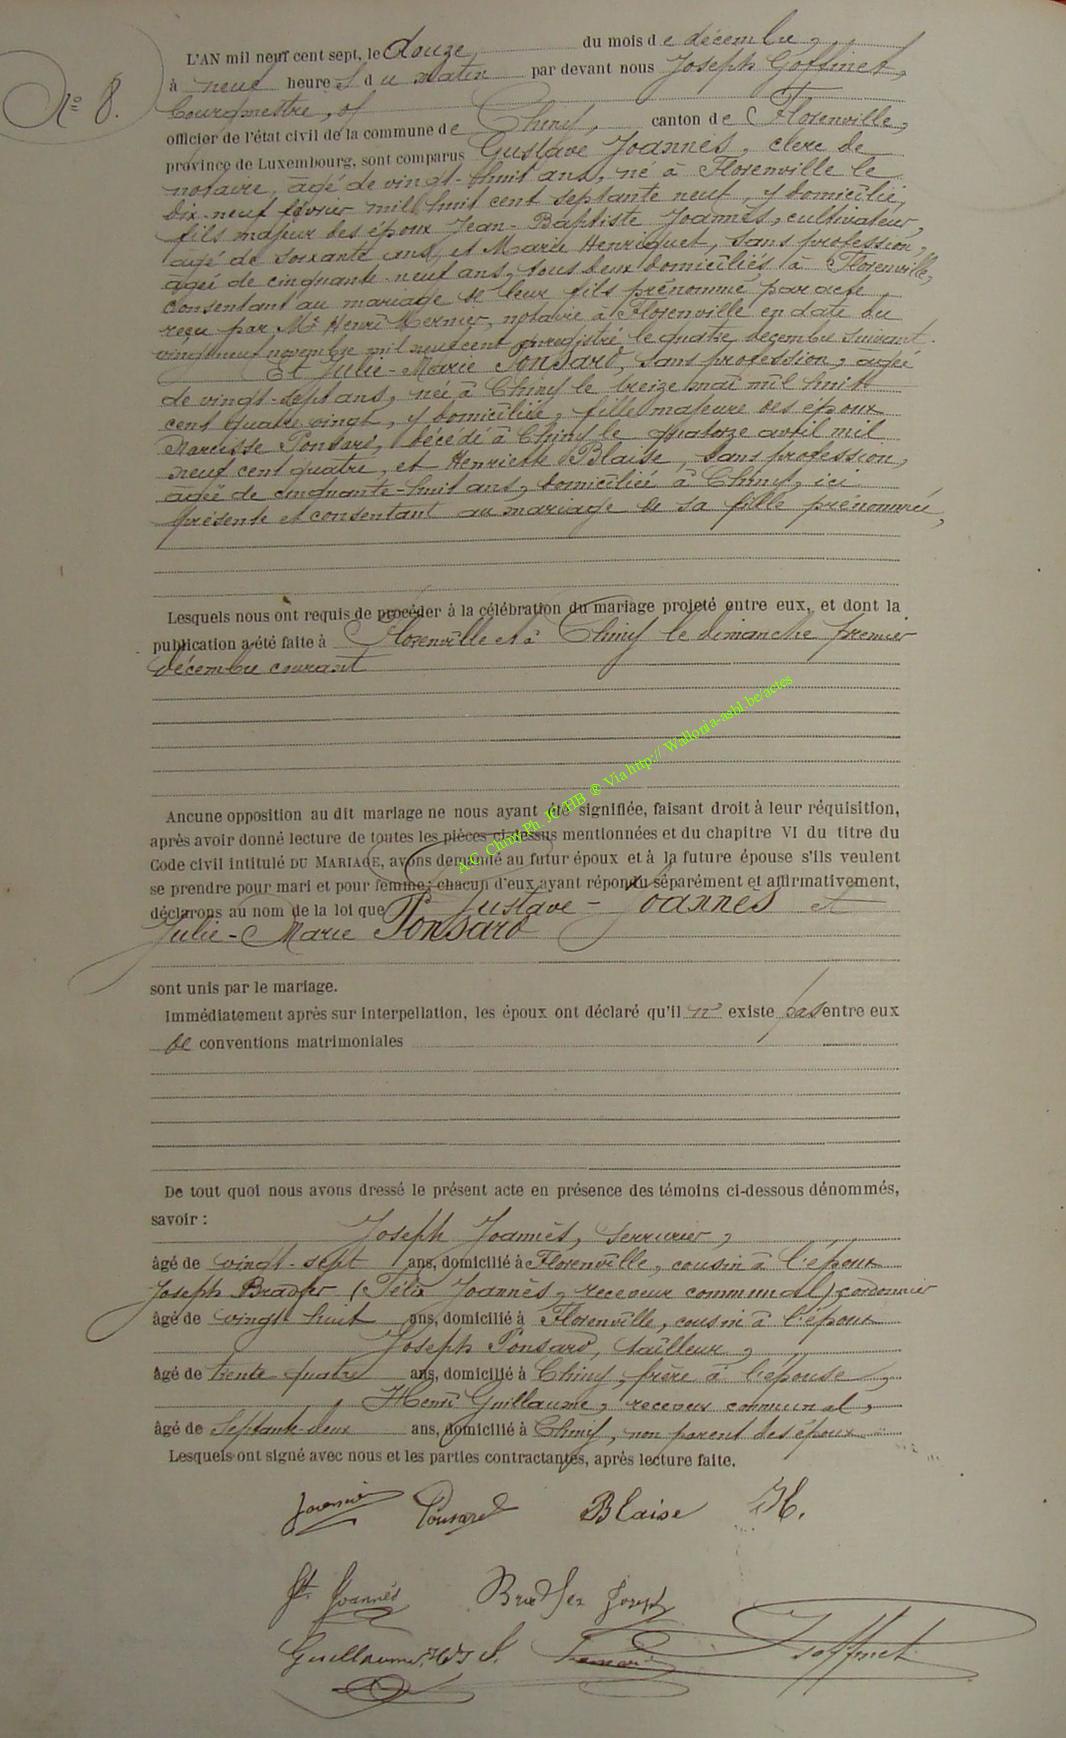 N° 8.
L'AN mil neuf cent sept, le douze du mois de décembre,
à neuf heures du matin par devant nous Joseph Goffinet,
bourgmestre,
officier de l'état civil de la commune de Chiny, canton de Florenville,
province de Luxembourg, sont comparus Gustave Joannès, clerc de
notaire, âgé de vingt-huit ans, né à Florenville le
dix-neuf février mil huit cent septante neuf, y domicilié,
fils majeur des époux Jean-Baptiste Joannès, cultivateur,
âgé de soixante ans, et Marie Henriquet, sans profession,
âgée de cinquante-neuf ans, tous deux domiciliés à Florenville,
consentant au mariage de leur fils prénommé par acte
reçu par Me Henri Mernier, notaire à Florenville en date du
vingt neuf novembre mil neuf cent enregistré le quatre décembre suivant.
Et Julie-Marie Ponsard, sans profession, âgée
de vingt-sept ans, née à Chiny le treize mai mil huit
cent quatre vingt, y domiciliée, fille majeure des époux
Narcisse Ponsard, décédé à Chiny le quatorze avril mil
neuf cent quatre, et Henriette Blaise, sans profession,
âgée de cinquante-huit ans, domiciliée à Chiny, ici
présente et consentant au mariage de sa fille prénommée,
Lesquels nous ont requis de procéder à la célébration du mariage projeté entre eux, et dont la
publication a été faite à Florenville et à Chiny le dimanche premier
décembre courant
Aucune opposition au dit mariage ne nous ayant été signifiée, faisant droit à leur réquisition,
après avoir donné lecture de toutes les pièces ci-dessus mentionnées et du chapitre VI du titre du
Code civil intitulé DU MARIAGE, avons demandé au futur époux et à la future épouse s'ils veulent
se prendre pour mari et pour femme; chacun d'eux ayant répondu séparément et affirmativement,
déclarons au nom de la loi que Gustave-Joannès et
Julie-Marie Ponsard
sont unis par le mariage.
Immédiatement après sur interpellation, les époux ont déclaré qu'il n' existe pas entre eux
de conventions matrimoniales
De tout quoi nous avons dressé le présent acte en présence des témoins ci-dessous dénommés,
savoir :
Joseph Joannès, serrurier,
âgé de vingt-sept ans, domicilié à Florenville, cousin à l'époux
Joseph Bradfer (Félix Joannès, receveur communal) cordonnier
âgé de vingt huit ans, domicilié à Florenville, cousin à l'époux
Joseph Ponsard, tailleur,
âgé de trente quatre ans, domicilié à Chiny, frère à l'épouse,
Henri Guillaume, receveur communal,
âgé de septante-deux ans, domicilié à Chiny, non parent des époux
Lesquels ont signé avec nous et les parties contractantes, après lecture faite.
Joannès Ponsard Blaise H.
Jh Joannès Bradfer Joseph
Guillaume Ponsard Goffinet
A.C. Chiny Ph. JC HB ® Via http:// Wallonia-asbl.be/actes